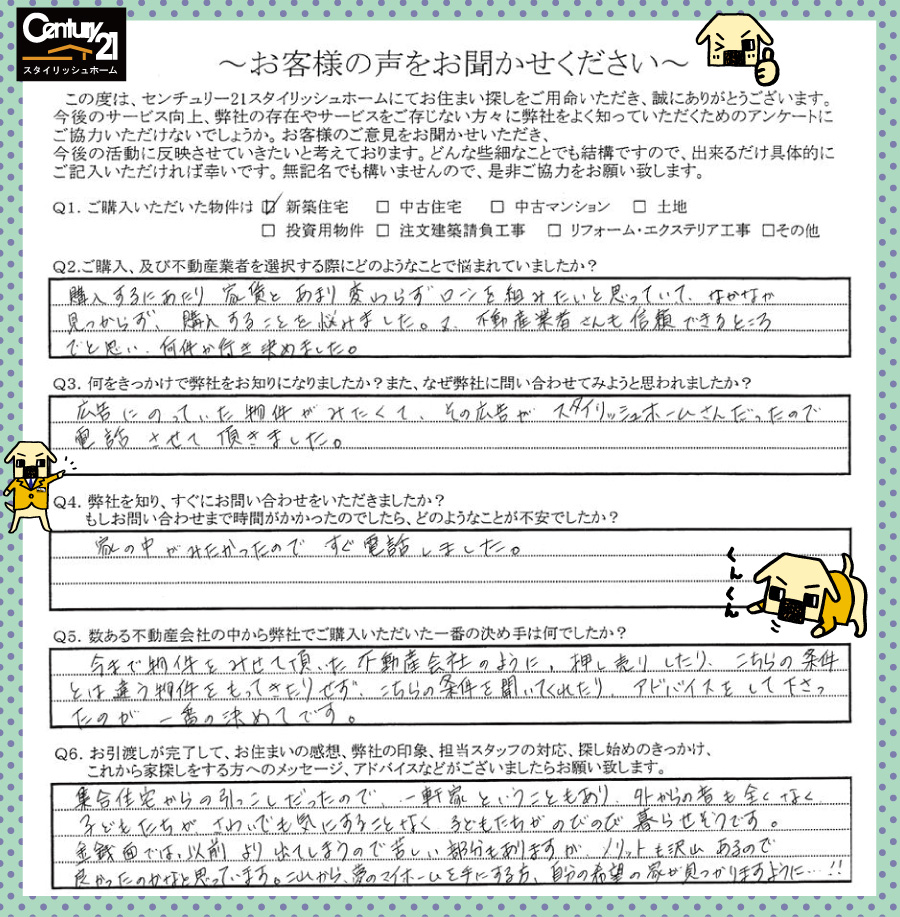 Century 21
スタイリッシュホーム
～お客様の声をお聞かせください～
この度は、センチュリー21スタイリッシュホームにてお住まい探しをご用命いただき、誠にありがとうございます。
今後のサービス向上、弊社の存在やサービスをご存じない方々に弊社をよく知っていただくためのアンケートに
ご協力いただけないでしょうか。お客様のご意見をお聞かせいただき、
今後の活動に反映させていきたいと考えております。どんな些細なことでも結構ですので、出来るだけ具体的に
ご記入いただければ幸いです。無記名でも構いませんので、是非ご協力をお願い致します。
Q1. ご購入いただいた物件は ☑ 新築住宅 □ 中古住宅 □ 中古マンション □ 土地
□ 投資用物件 □ 注文建築請負工事 □ リフォーム・エクステリア工事 □その他
Q2.ご購入、及び不動産業者を選択する際にどのようなことで悩まれていましたか？
購入するにあたり 家賃と あまり 変わらず ローンを 組みたいと思っていて、なかなか
見つからず、購入することを悩みました。又、不動産業者さんも信頼できるところ
でと思い、何件か行き決めました。
Q3. 何をきっかけで弊社をお知りになりましたか？また、なぜ弊社に問い合わせてみようと思われましたか？
広告にのっていた物件がみたくて、その広告がスタイリッシュホームさんだったので
電話させて頂きました。
Q4. 弊社を知り、すぐにお問い合わせをいただきましたか？
もしお問い合わせまで時間がかかったのでしたら、どのようなことが不安でしたか？
家の中がみたかったのですぐ電話しました。
くんくん
Q5. 数ある不動産会社の中から弊社でご購入いただいた一番の決め手は何でしたか？
今まで物件をみせて頂いた不動産会社のように、押し売りしたり、こちらの条件
とは違う物件をもってきたりせず、こちらの条件を聞いてくれたり、アドバイスをして下さっ
たのが一番の決めてです。
Q6. お引渡しが完了して、お住まいの感想、弊社の印象、担当スタッフの対応、探し始めのきっかけ、
これから家探しをする方へのメッセージ、アドバイスなどがございましたらお願い致します。
集合住宅からの引っこしだったので、一軒家ということもあり、外からの音も全くなく、
子どもたちが、さわいでも気にすることなく子どもたちがのびのび暮らせそうです。
金銭面では、以前より出てしまうので苦しい部分もありますが、メリットも沢山あるので
良かったのかなと思っています。これから、夢のマイホームを手にする方、自分の希望の家が見つかりますように…!!